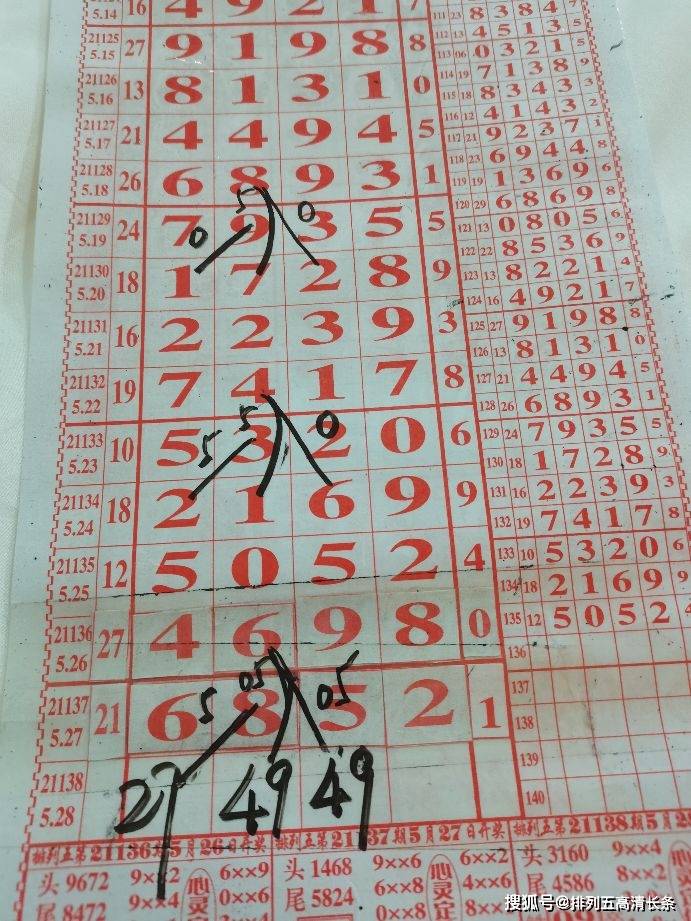 5.14 16 4 9 2 1 7
21125 5.15 27 9 1 9 8 8
21126 5.16 13 8 1 3 1 0
21127 5.17 21 4 4 9 4 5
21128 5.18 26 6 8 9 3 1
5 0
21129 5.19 24 7 9 3 5 5
0
21130 5.20 18 1 7 2 8 9
21131 5.21 16 2 2 3 9 3
21132 5.22 19 7 4 1 7 8
5 0
21133 5.23 10 5 3 2 0 6
5
21134 5.24 18 2 1 6 9 9
21135 5.25 12 5 0 5 2 4
21136 5.26 27 4 6 9 8 0
05 05
21137 5.27 21 6 8 5 2 1
5
21138 5.28
27 49 49
111 23 8 3 8 4 7
112 13 4 5 1 3 5
113 06 0 3 2 1 5
114 19 7 1 3 8 9
115 18 8 3 4 3 3
116 12 4 1 4 3 2
117 21 9 2 3 7 1
118 23 6 9 4 4 8
119 19 1 3 6 9 6
120 29 6 8 6 9 8
121 13 0 8 0 5 6
122 22 8 5 3 6 9
123 13 8 2 2 1 4
124 16 4 9 2 1 7
125 27 9 1 9 8 8
126 13 8 1 3 1 0
127 21 4 4 9 4 5
128 26 6 8 9 3 1
129 24 7 9 3 5 5
130 18 1 7 2 8 9
131 16 2 2 3 9 3
132 19 7 4 1 7 8
133 10 5 3 2 0 6
134 18 2 1 6 9 9
135 12 5 0 5 2 4
136
137
138
139
140
排列五第21136期5月26日开奖
头 9672 9××2 6××9
尾 8472 9××4 0××6
心灵
排列五第21137期5月27日开奖
头 1468 9××6 6××2
尾 5824 6××8 4××6
心灵
排列五第21138期5月28
头 3160 9××4
尾 4586 8××2
心灵
搜狐号@排列五高清长条